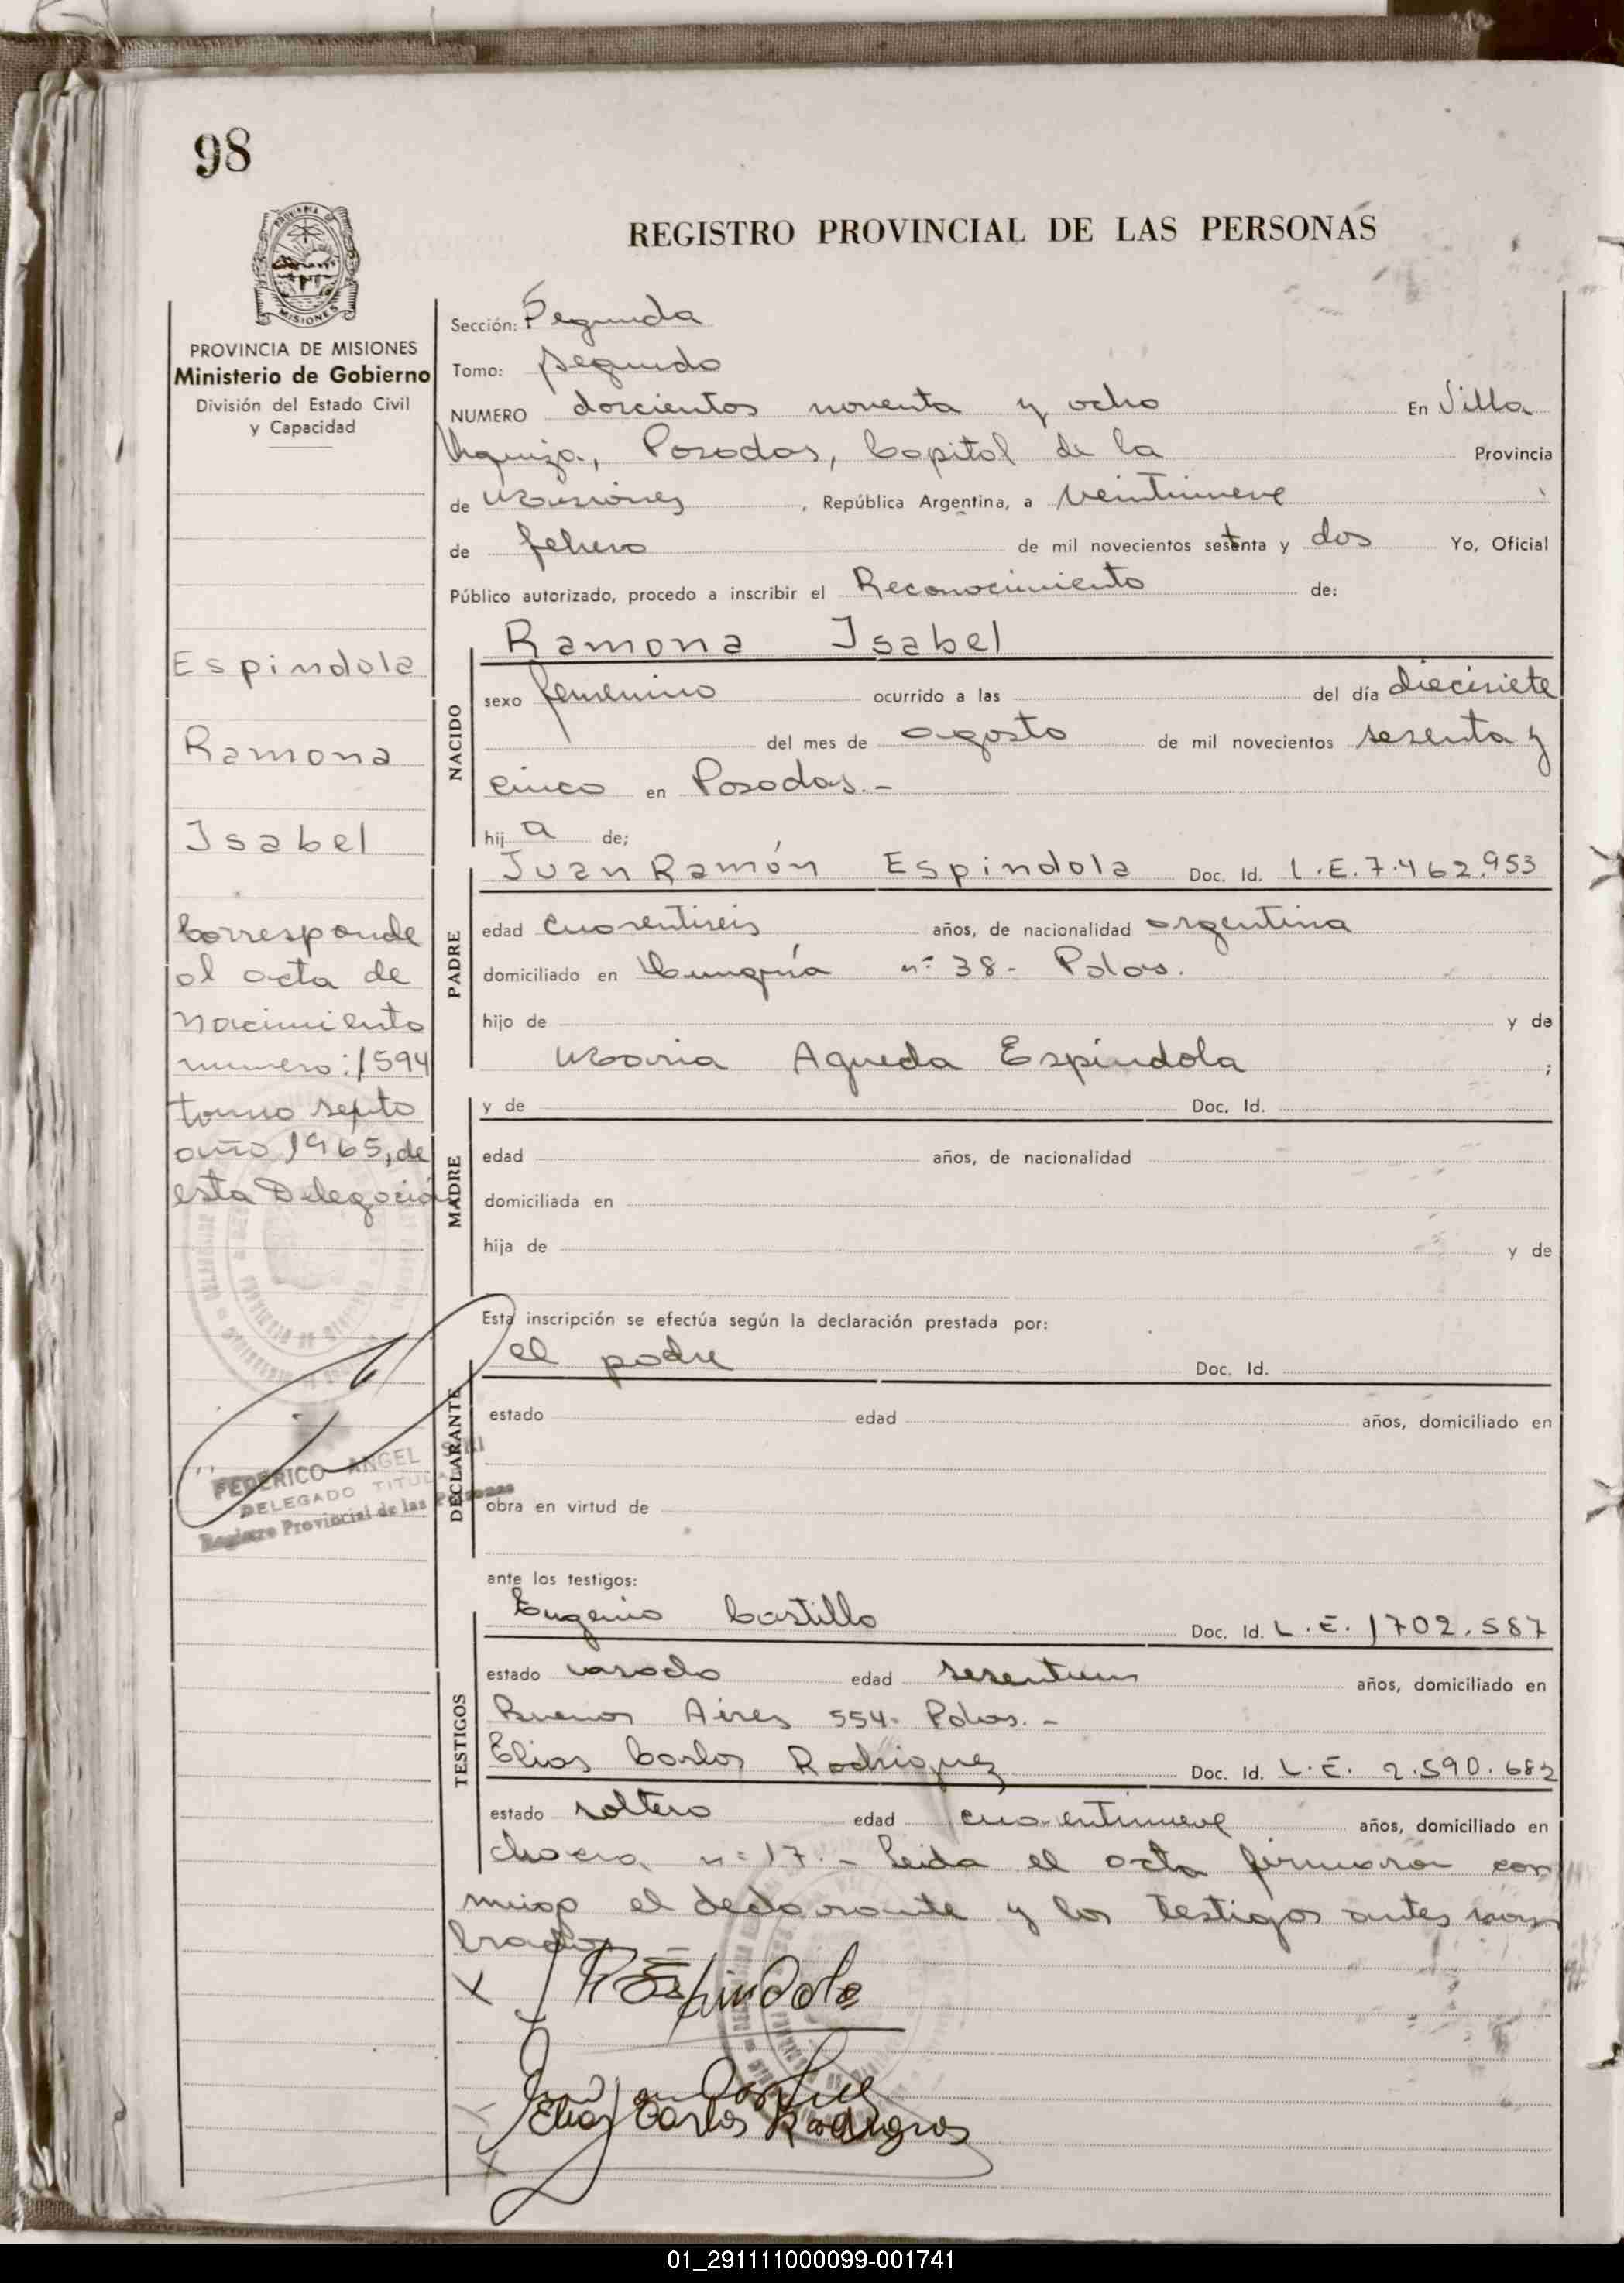 98
PROVINCIA DE MISIONES
Ministerio de Gobierno
División del Estado Civil
y Capacidad
REGISTRO PROVINCIAL DE LAS PERSONAS
Sección: Segunda
Tomo: segundo
NUMERO doscientos noventa y ocho En Villa
Urquiza, Posadas, Capital de la Provincia
de Misiones, República Argentina, a veintinueve
de febrero de mil novecientos setenta y dos Yo, Oficial
Público autorizado, procedo a inscribir el Reconocimiento de:
Espindola
Ramona
Isabel
Corresponde
al acta de
nacimiento
numero: 1594
tomo septo
año 1965, de
esta Delegación
FEDERICO ANGEL
DELEGADO TITULAR
Registro Provincial de las Personas
NACIDO
Ramona Isabel
sexo femenino ocurrido a las del día diecisiete
del mes de agosto de mil novecientos sesenta y
cinco en Posadas.-
hij a de;
PADRE
Juan Ramón Espindola Doc. Id. L.E. 7.462.953
edad cuarentiseis años, de nacionalidad argentina
domiciliado en Hungría nº 38- Pdas.
hijo de y de
Maria Agueda Espíndola ;
MADRE
y de Doc. Id.
edad años, de nacionalidad
domiciliada en
hija de y de
Esta inscripción se efectúa según la declaración prestada por:
DECLARANTE
el padre Doc. Id.
estado edad años, domiciliado en
obra en virtud de
ante los testigos:
TESTIGOS
Eugenio Castillo Doc. Id. L.E. 1702.587
estado casado edad sesentiun años, domiciliado en
Buenos Aires 554- Pdas.-
Elias Carlos Rodriguez Doc. Id. L.E. 2.590.682
estado soltero edad cuarentinueve años, domiciliado en
chacra nº 17.- Leida el acta firmaron con
migo el declarante y los testigos antes nom
brados
X J R Espindola
Elias Carlos Rodrigues
X
01_291111000099-001741